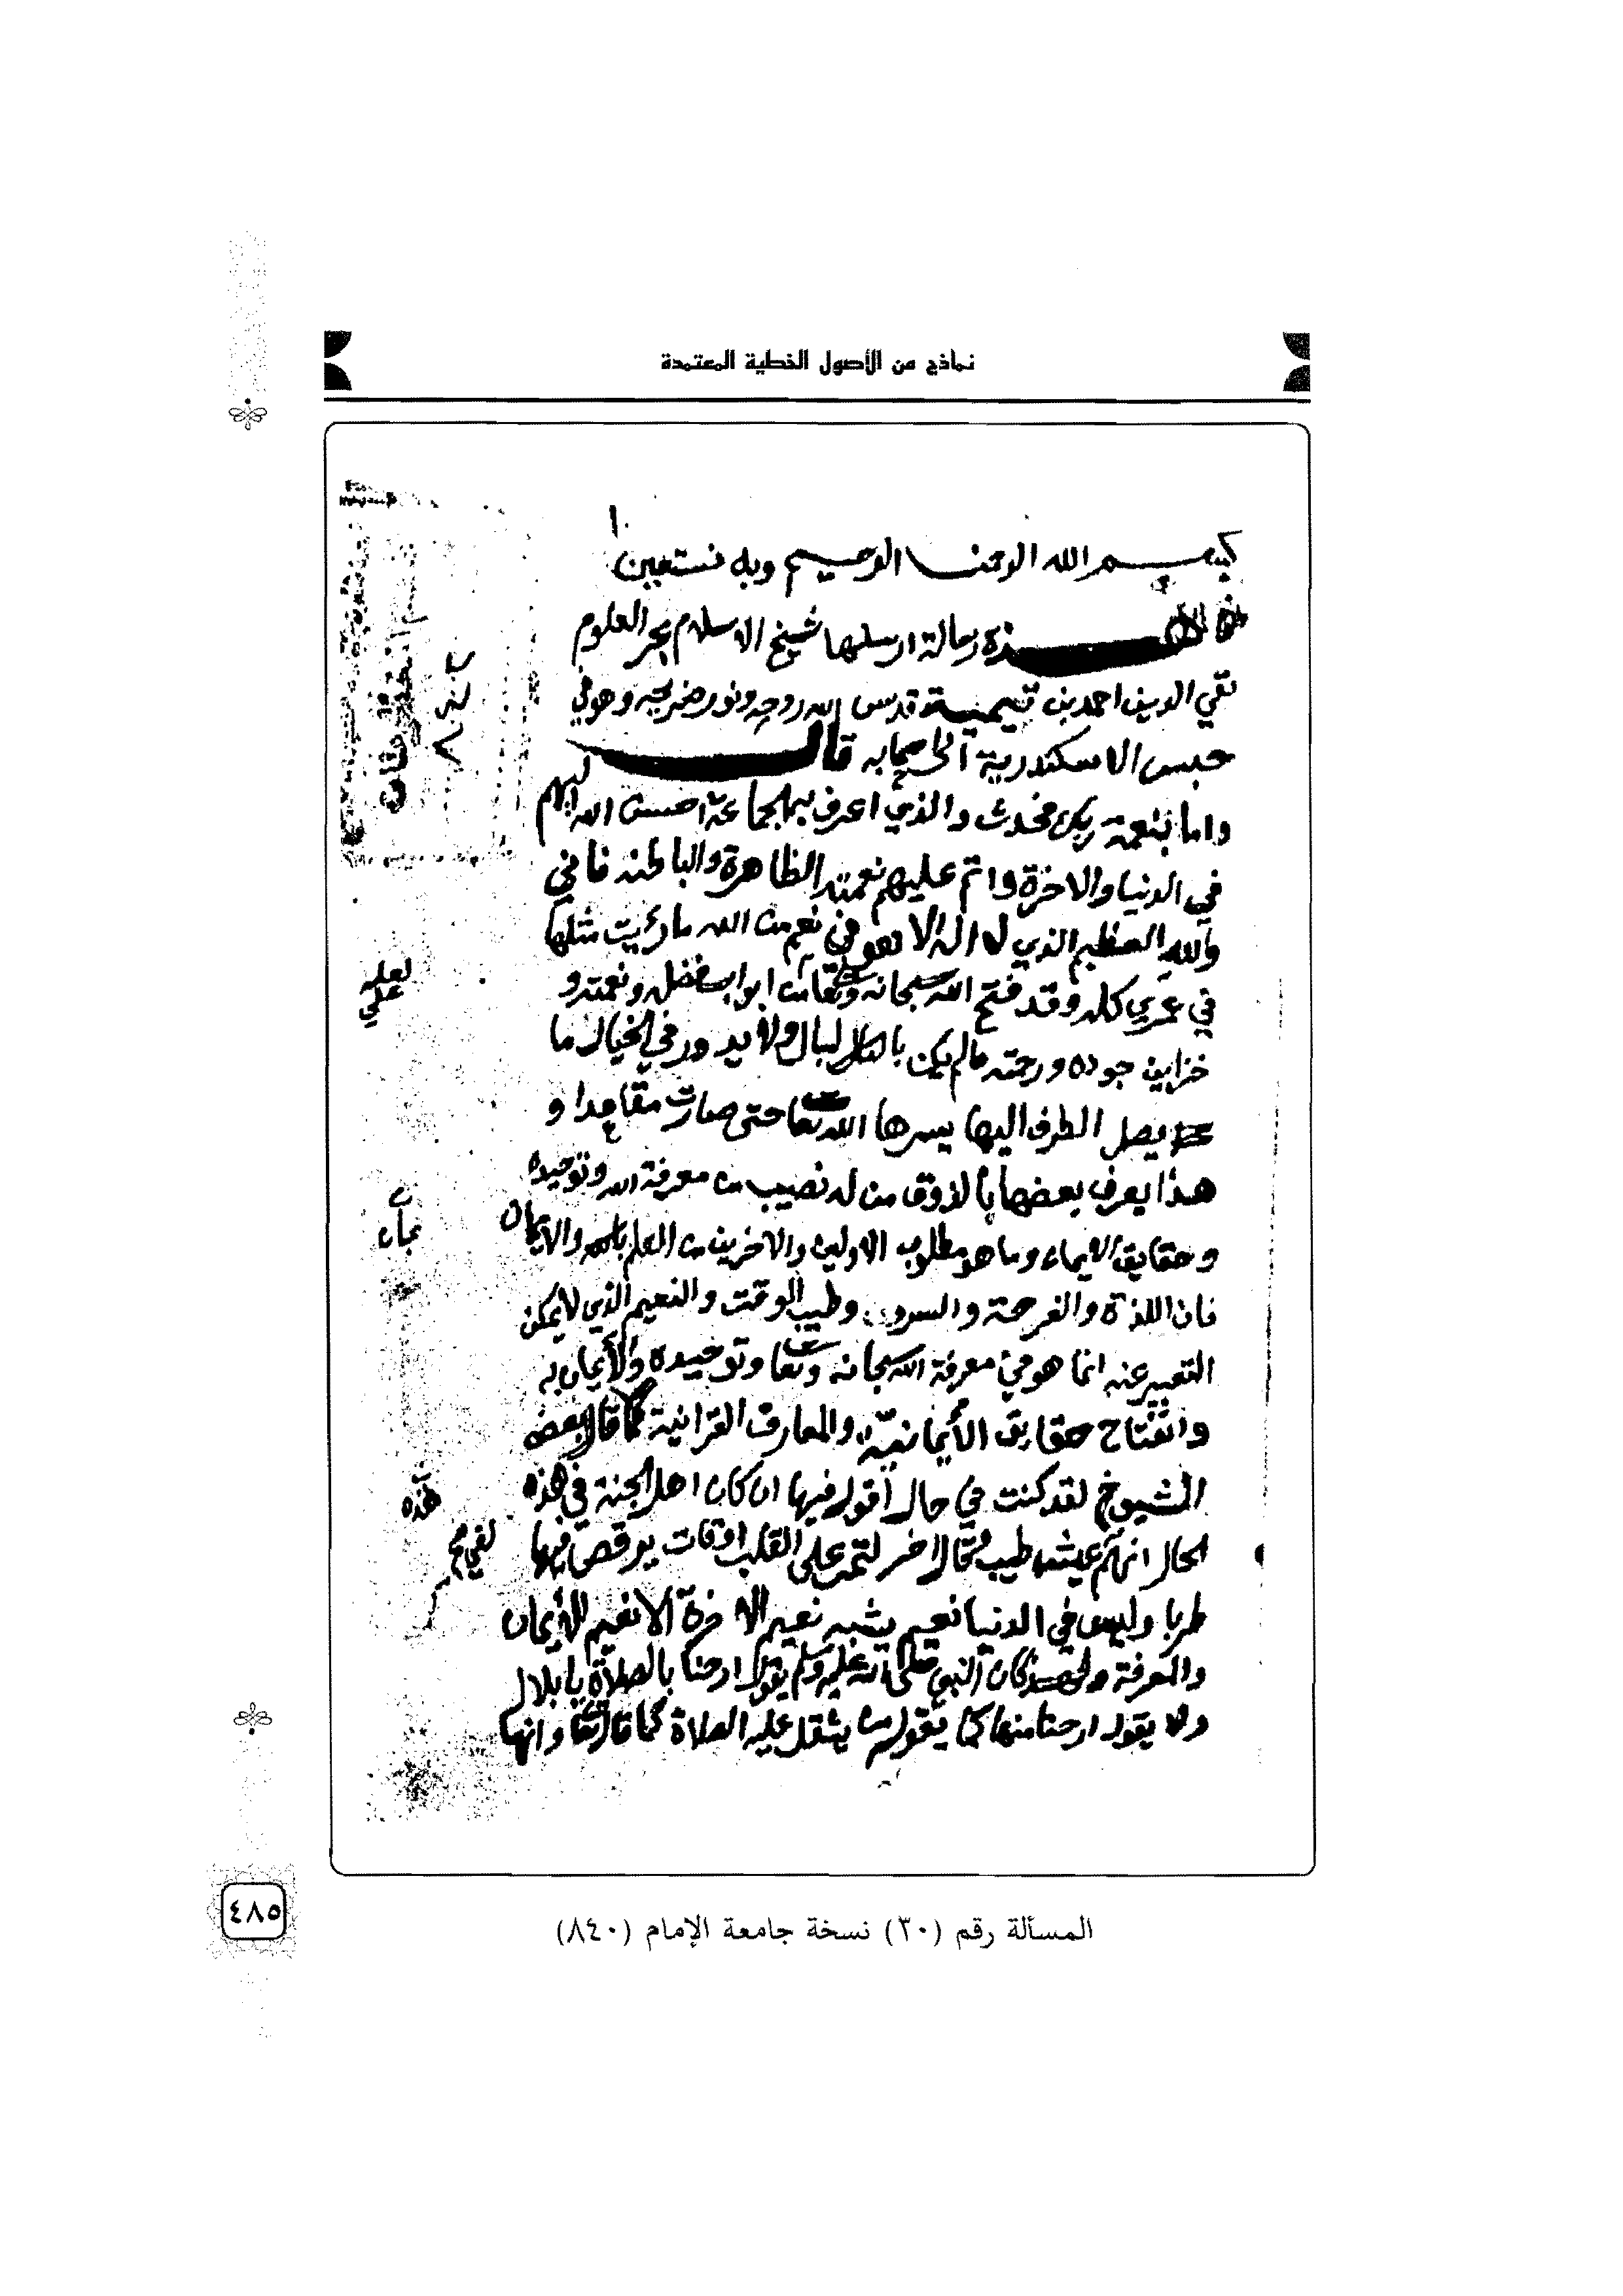 نماذج من الأصول الخطية المعتمدة
بسم الله الرحمن الرحيم وبه نستعين
هذه رسالة ارسلها شيخ الاسلام بحر العلوم
تقي الدين احمد بن تيمية قدس الله روحه ونور ضريحه وهو في
حبس الاسكندرية الى اصحابه قال
واما بنعمة ربك فحدث والذي اعرف به الجماعة احسن الله اليهم
في الدنيا والاخرة واتم عليهم نعمته الظاهرة والباطنه فاني
والله العظيم الذي لا اله الا هو في نعم من الله ما رئيت مثلها
في عمري كله وقد فتح الله سبحانه وتعا من ابواب فضله ونعمته و
خزاين جوده ورحمته مالم يكن بالبال ولا يدور في الخيال ما
يصل الطرف اليها يسرها الله تعا حتى صارت مقاعدا و
هذا يعرف بعضها بالذوق من له نصيب من معرفة الله وتوحيده
وحقايق الايماء وما هو مطلوب الاولين والاخرين من العلم بالله والايمان
فان اللذة والفرحة والسرور وطيب الوقت والنعيم الذي لا يمكن
التعبير عنه انما هو في معرفة الله سبحانه وتعا وتوحيده والأيمان به
وانفتاح حقايق الأيمانية والمعارف القرانية كما قال بعض
الشيوخ لقد كنت في حال أقول فيها ان كان اهل الجنة في هذه
الحال انهم عيش طيب وقال اخر لتمر على القلب اوقات يرقص فيها
طربا وليس في الدنيا نعيم يشبه نعيم الاخرة الا نعيم الأيمان
والمعرفة كان النبي صلى الله عليه وسلم يقول ارحنا بالصلاة يا بلال
ولا يقول ارحنا منها كما يقول من يثقل عليه الصلاة كما قال تعا وانها
لعله
علي
ن
يمان
هذه
لفي
٤٨٥
المسألة رقم (٣٠) نسخة جامعة الإمام (٨٤٠)